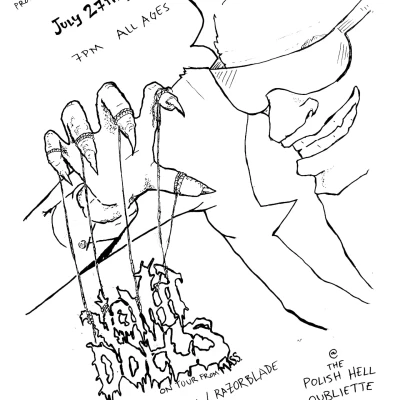 July 27th
7PM ALL AGES
ON TOUR FROM MASS.
/ RAZORBLADE
@
THE
POLISH HELL
OUBLIETTE